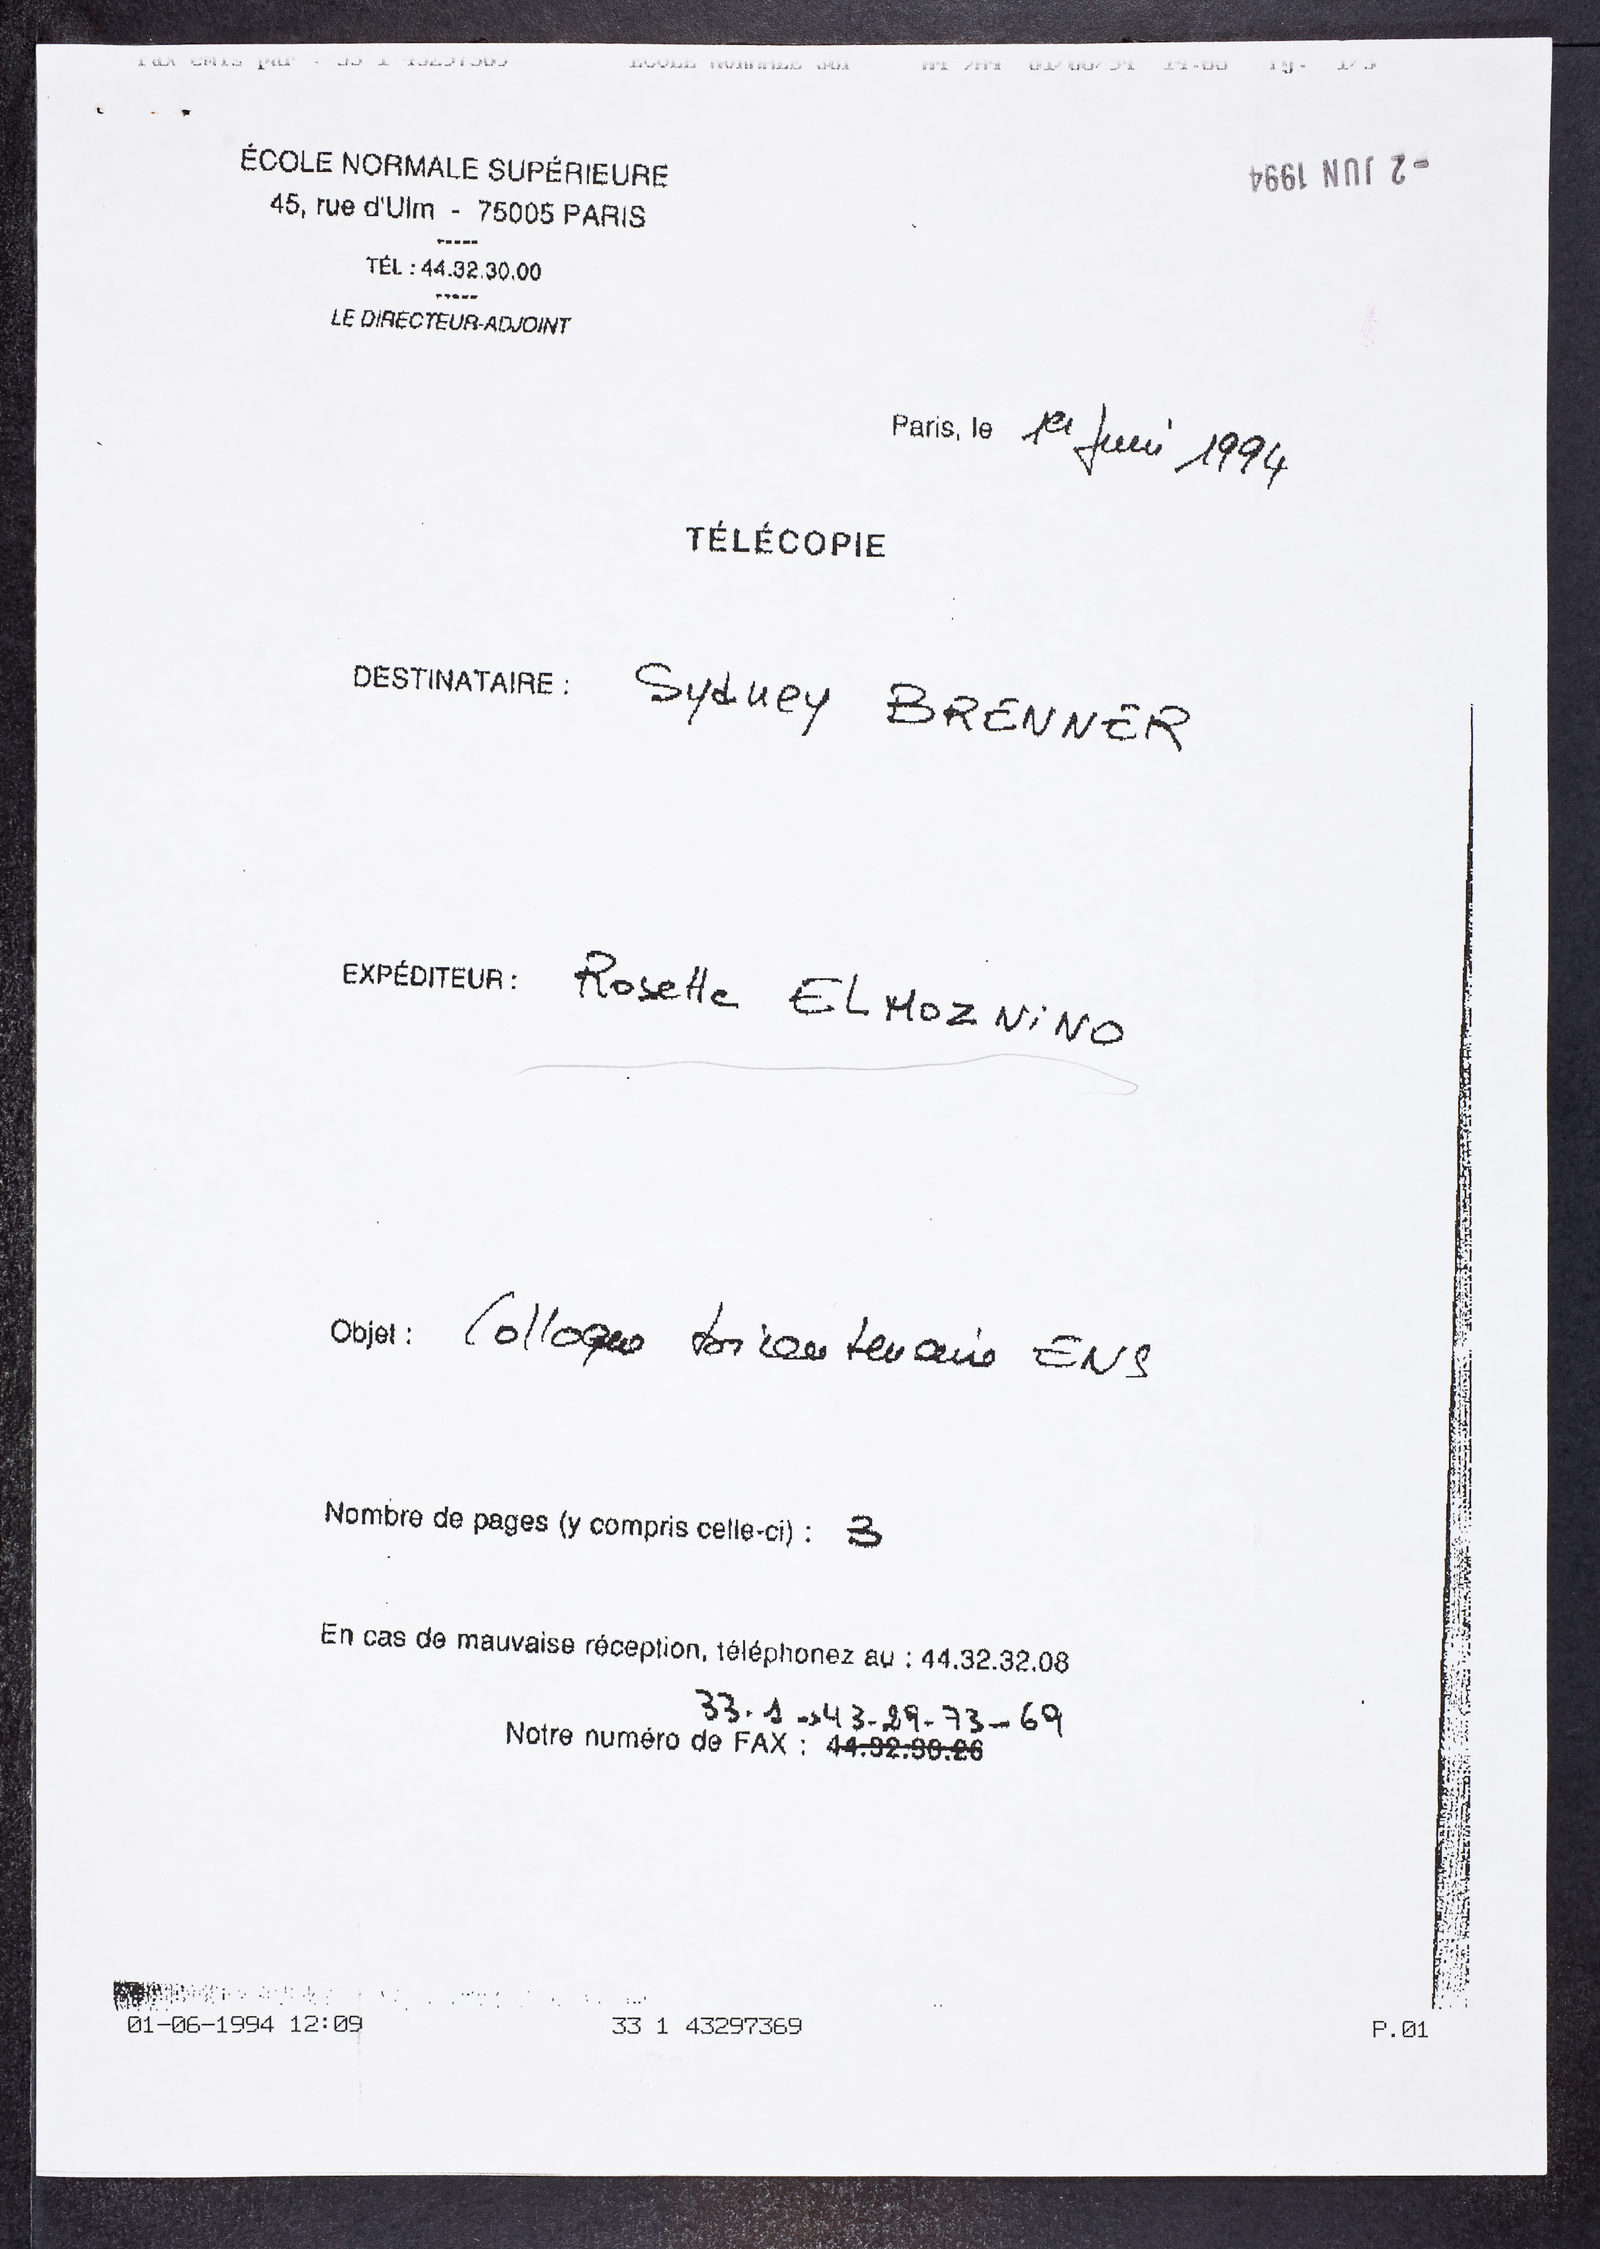 ÉCOLE NORMALE SUPÉRIEURE
45, rue d'Ulm - 75005 PARIS
-----
TÉL : 44.32.30.00
-----
LE DIRECTEUR-ADJOINT
- 2 JUN 1994
Paris, le 1er Juin 1994
TÉLÉCOPIE
DESTINATAIRE : Sydney BRENNER
EXPÉDITEUR : Rosette ELMOZNINO
Objet : Colloque bicentenaire ENS
Nombre de pages (y compris celle-ci) : 3
En cas de mauvaise réception, téléphonez au : 44.32.32.08
33. 1 -> 43-29-73-69
Notre numéro de FAX : 44.32.30.26
01-06-1994 12:09 33 1 43297369 P.01